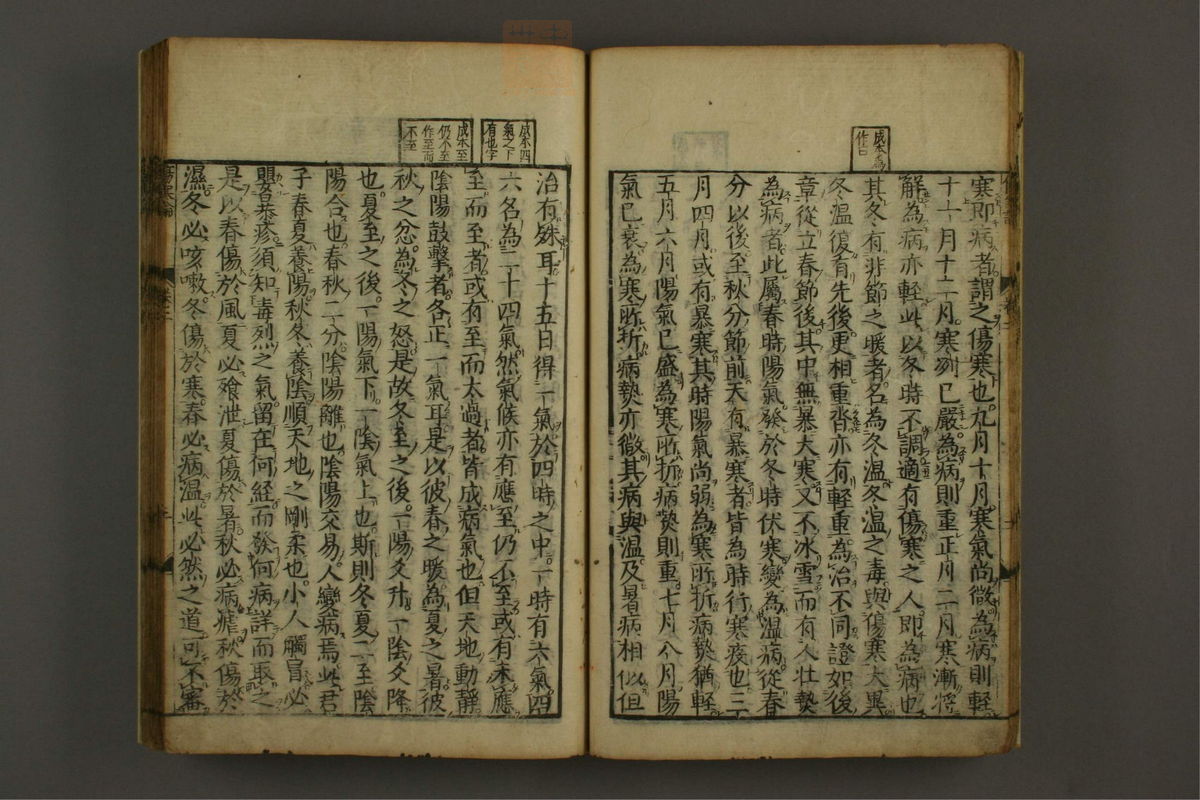 成本爲
作曰
寒即病者謂之傷寒也九月十月寒氣尚微為病則輕
十一月十二月寒冽已嚴為病則重正月二月寒漸將
解為病亦輕此以冬時不調適有傷寒之人即為病也
其冬有非節之暖者名為冬溫冬溫之毒與傷寒大異
冬溫復有先後更相重沓亦有輕重為治不同證如後
章從立春節後其中無暴大寒又不冰雪而有人壯熱
為病者此屬春時陽氣發於冬時伏寒變為溫病從春
分以後至秋分節前天有暴寒者皆為時行寒疫也三
月四月或有暴寒其時陽氣尚弱為寒所折病熱猶輕
五月六月陽氣已盛為寒所折病熱則重七月八月陽
氣已衰為寒所折病熱亦微其病與溫及暑病相似但
成本四
氣之下
有也字
成本至
仍不至
作至而
不至
治有殊耳十五日得一氣於四時之中一時有六氣四
六名為二十四氣然氣候亦有應至仍不至或有未應
至而至者或有至而太過者皆成病氣也但天地動靜
陰陽鼓擊者各正一氣耳是以彼春之暖為夏之暑彼
秋之忿為冬之怒是故冬至之後一陽爻升一陰爻降
也夏至之後一陽氣下一陰氣上也斯則冬夏二至陰
陽合也春秋二分陰陽離也陰陽交易人變病焉此君
子春夏養陽秋冬養陰順天地之剛柔也小人觸冒必
嬰暴疹須知毒烈之氣留在何經而發何病詳而取之
是以春傷於風夏必飧泄夏傷於暑秋必病瘧秋傷於
濕冬必咳嗽冬傷於寒春必病溫此必然之道可不審